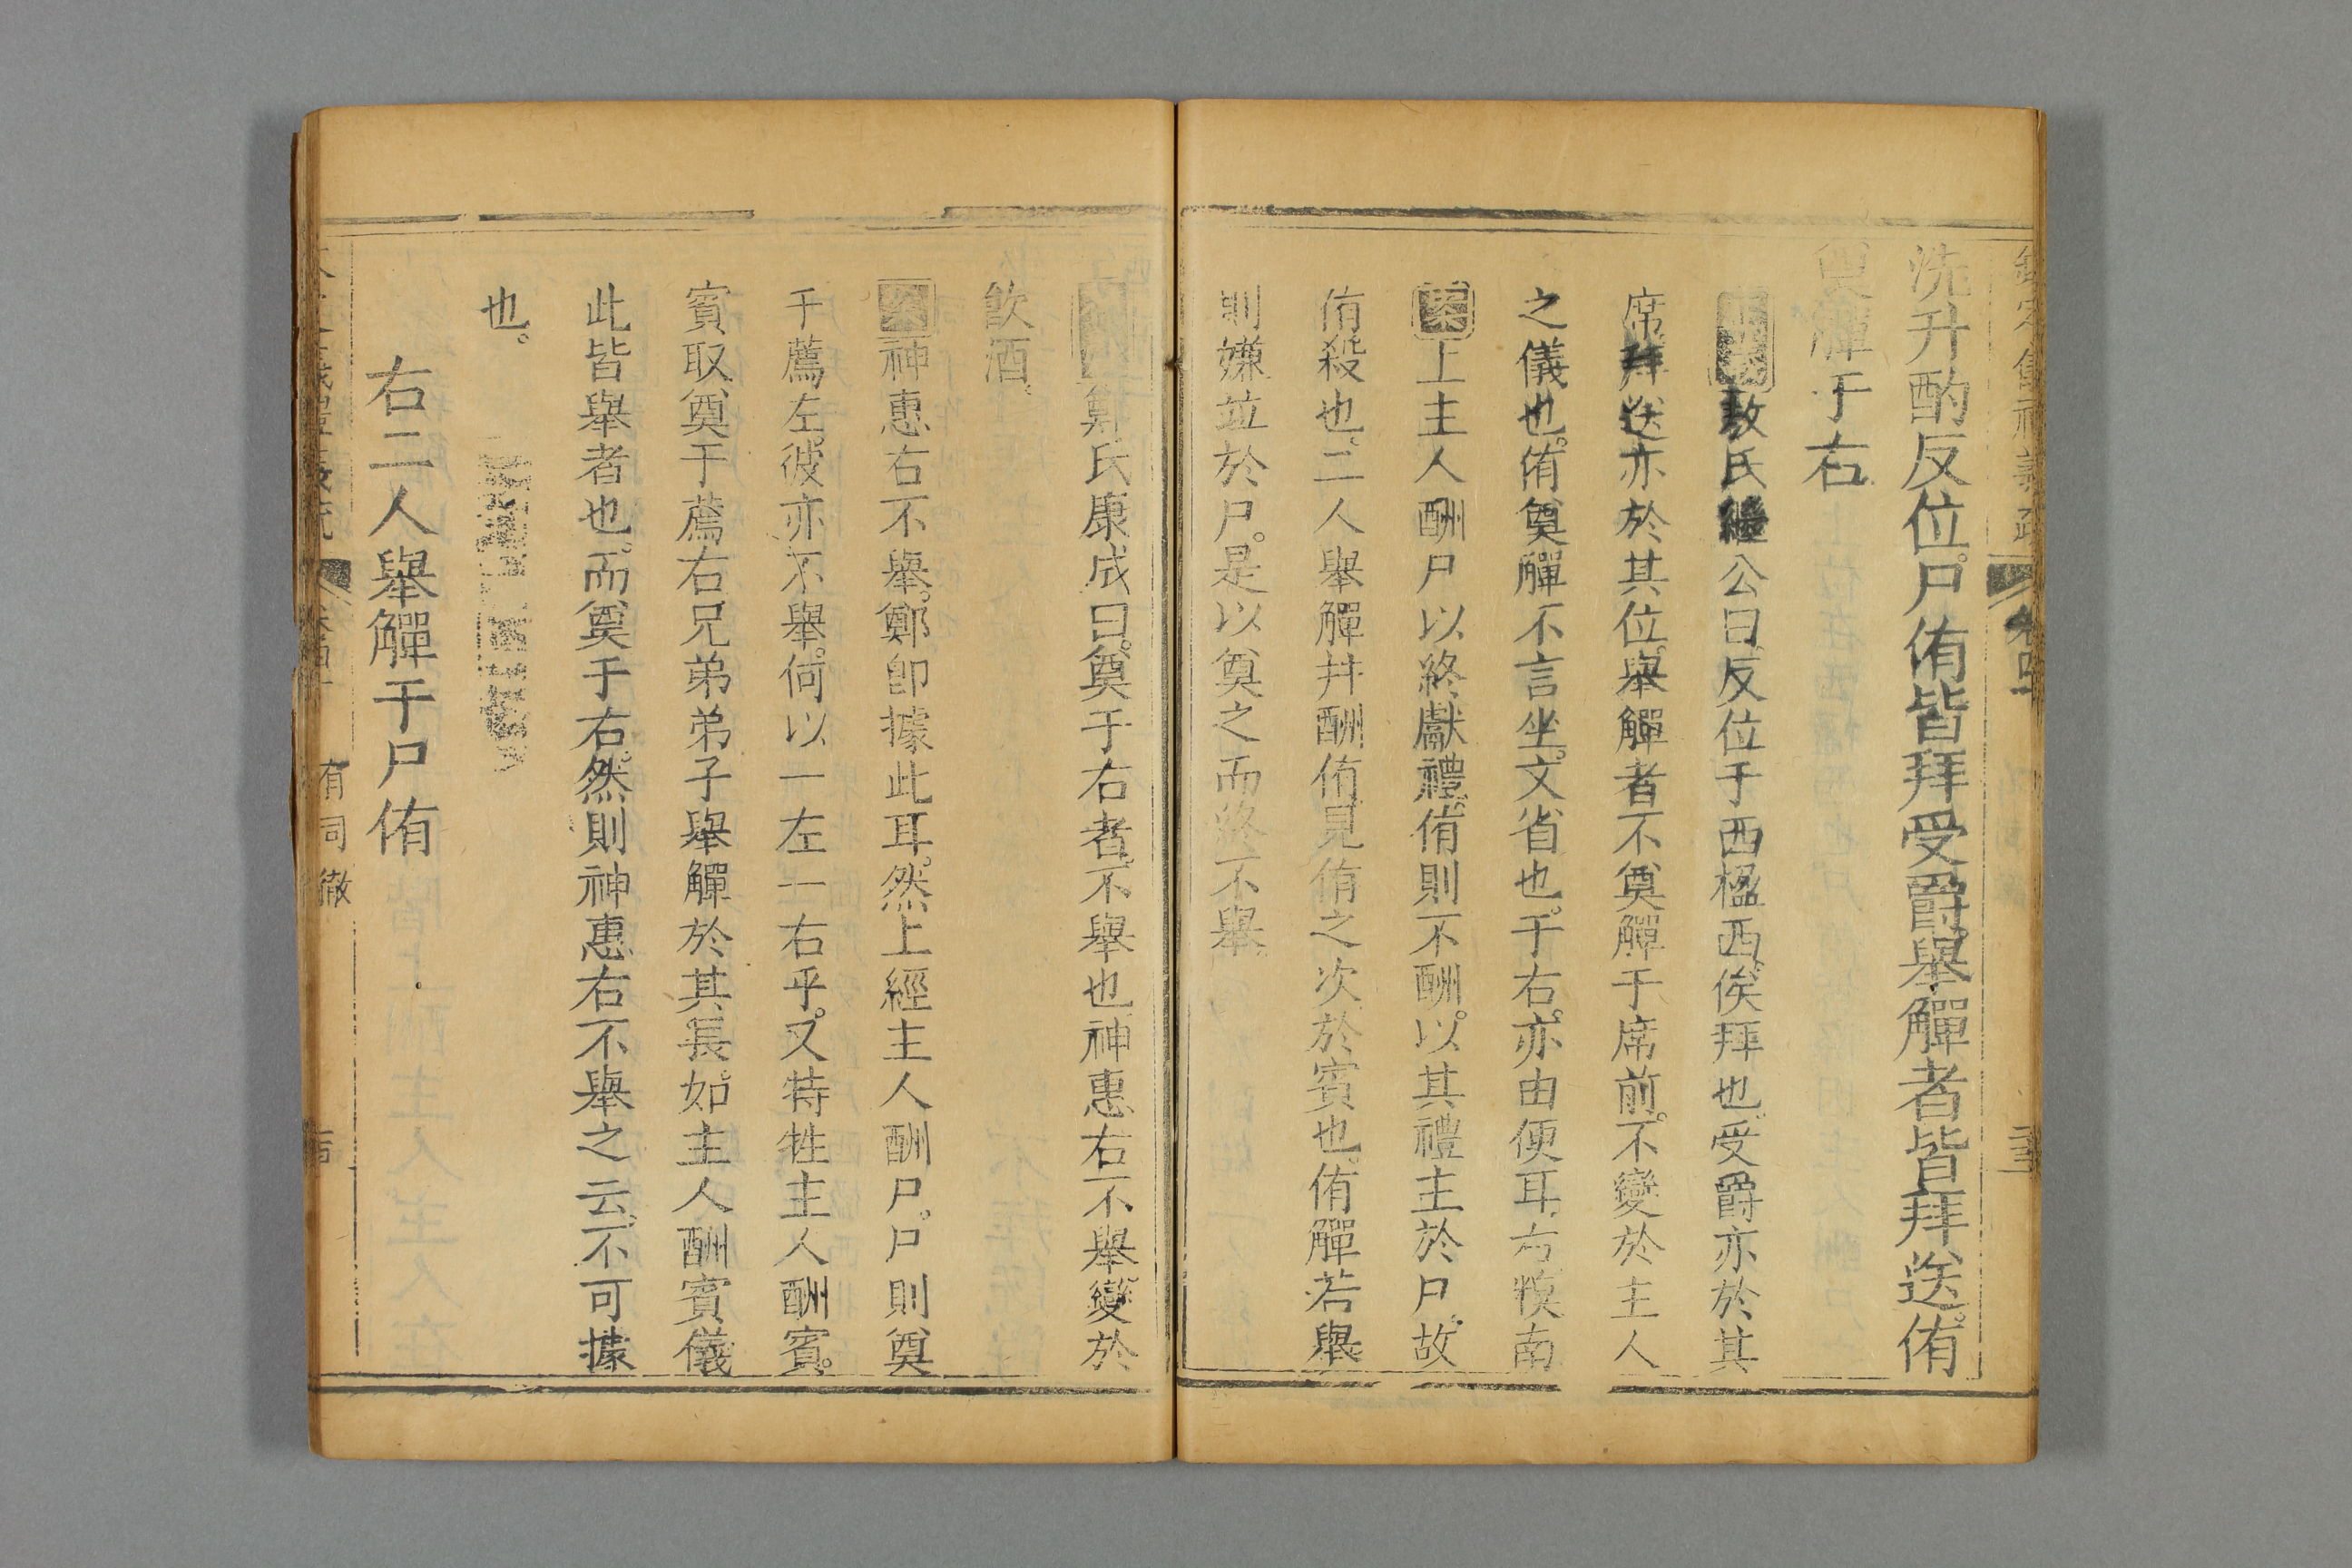 洗升酌反位。尸侑皆拜受爵舉觶者皆拜送。侑
奠觶于右
敖氏繼公曰反位于西楹西俟拜也受爵亦於其
席拜送亦於其位舉觶者不奠觶于席前。不變於主人
之儀也。侑奠觶不言坐。文省也。于右。亦由便耳右㨾南
案上主人酬尸以終獻禮。侑則不酬。以其禮主於尸。故
侑殺也。二人舉觶并酬侑見侑之次於賓也。侑觶若舉
則嫌並於尸。是以奠之而終不舉
鄭氏康成曰。奠于右者不舉也神惠右不舉變於
飲酒。
案神惠右不舉。鄭卽據此耳。然上經主人酬尸。尸則奠
于薦左。彼亦不舉。何以一左一右乎。又特牲主人酬賓。
賓取奠于薦右兄弟弟子舉觶於其長。如主人酬賓儀
此皆舉者也。而奠于右。然則神惠右不舉之云。不可據
也。
右二人舉觶于尸侑
有司徹